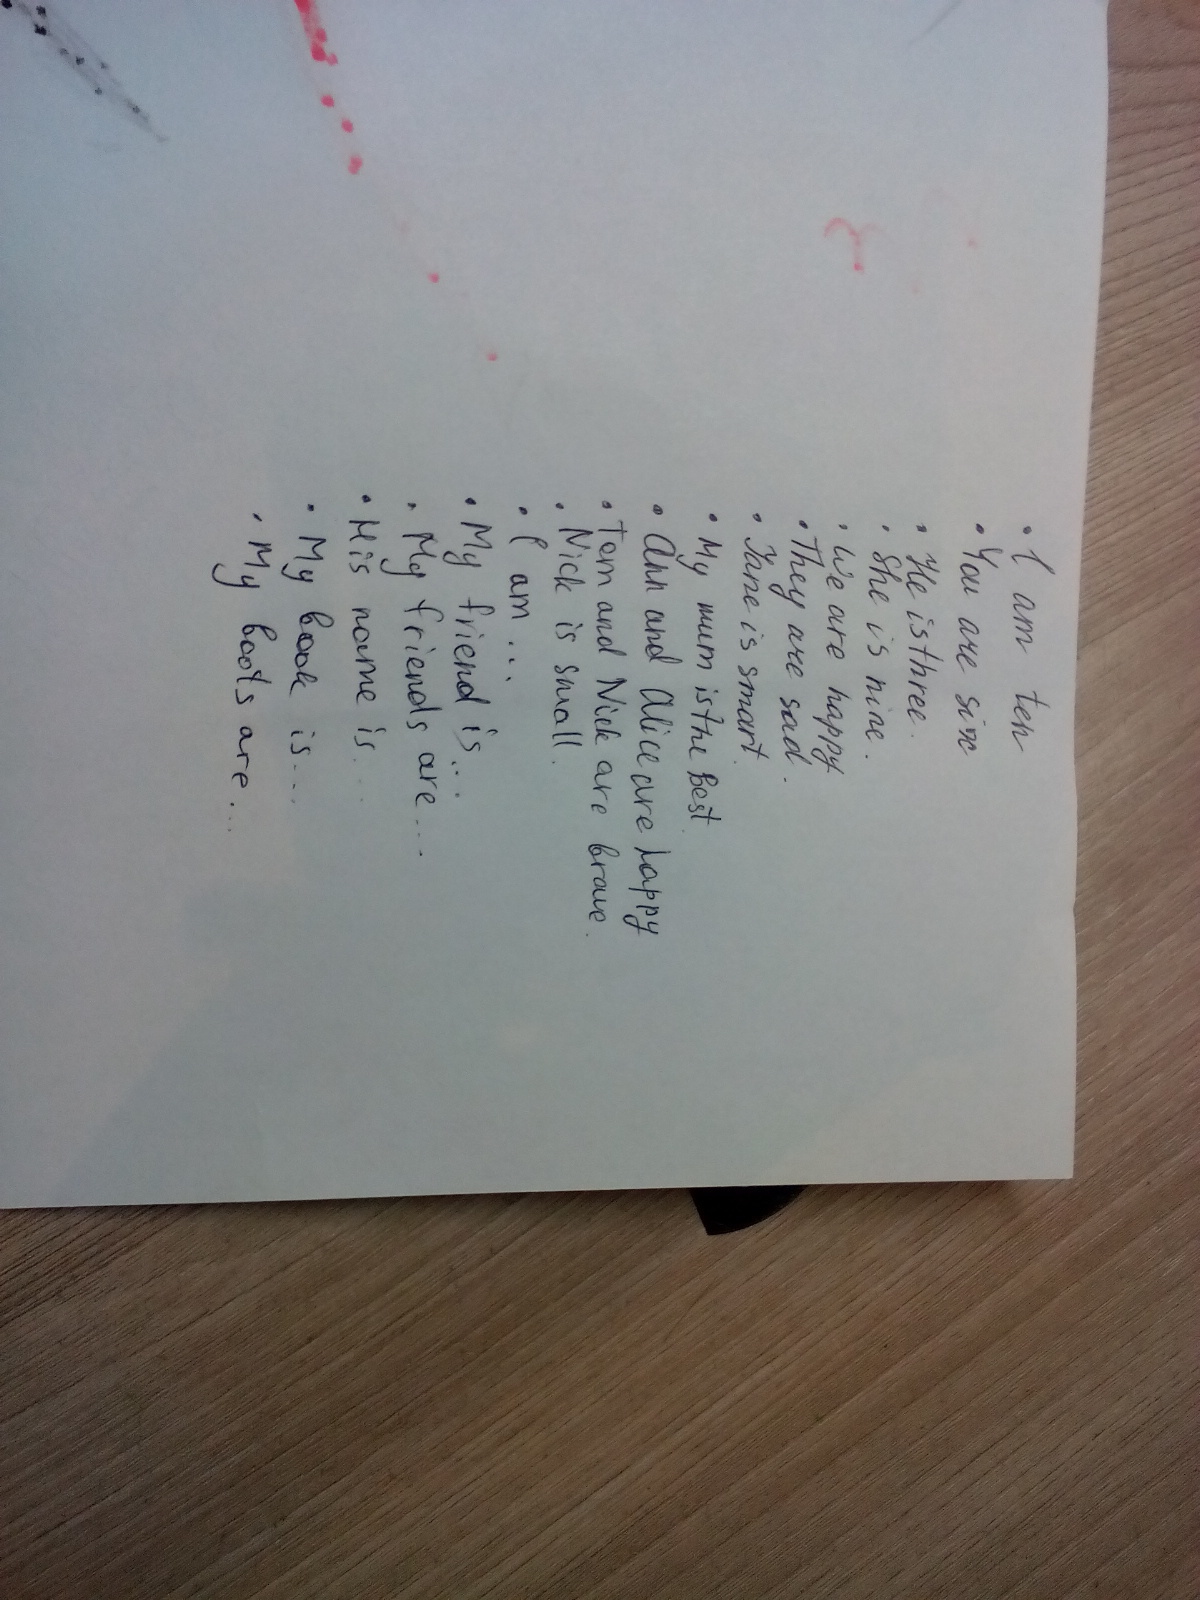 • I am ten
• You are six
• He is three.
• She is nine.
• We are happy
• They are sad.
• Jane is smart.
• My mum is the best.
• Ann and Alice are happy
• Tom and Nick are brave.
• Nick is small.
• I am ...
• My friend is...
• My friends are...
• His name is...
• My book is...
• My boots are...